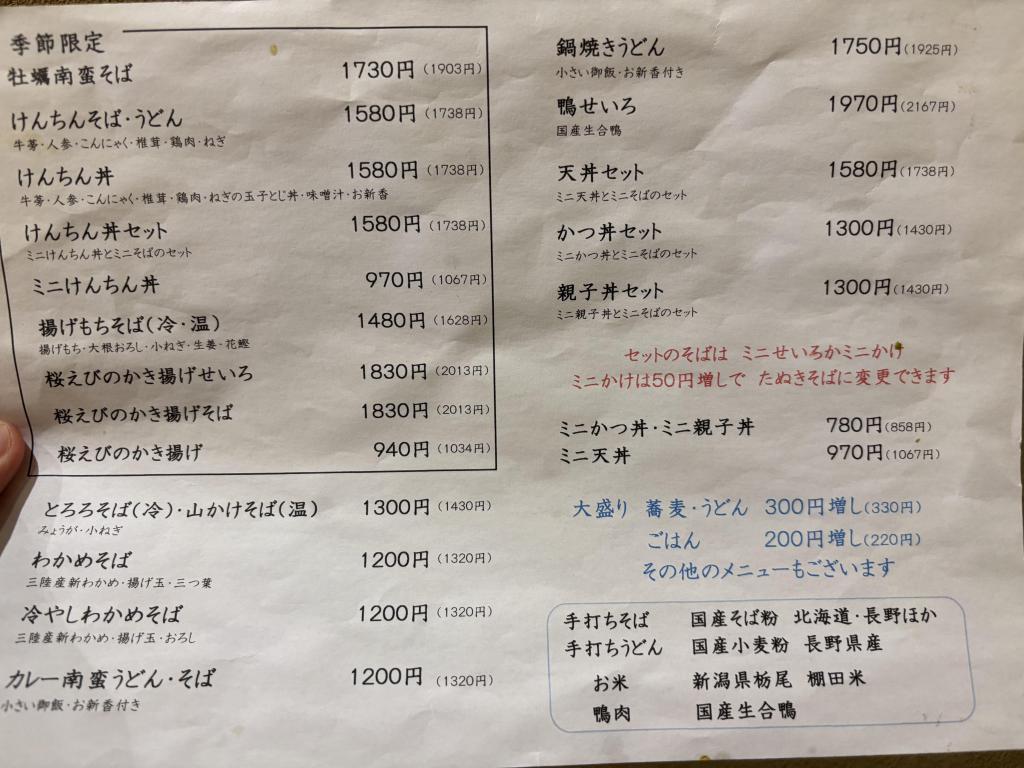 季節限定
牡蠣南蛮そば 1730円(1903円)
けんちんそば・うどん 1580円(1738円)
牛蒡・人参・こんにゃく・椎茸・鶏肉・ねぎ
けんちん丼 1580円(1738円)
牛蒡・人参・こんにゃく・椎茸・鶏肉・ねぎの玉子とじ丼・味噌汁・お新香
けんちん丼セット 1580円(1738円)
ミニけんちん丼とミニそばのセット
ミニけんちん丼 970円(1067円)
揚げもちそば(冷・温) 1480円(1628円)
揚げもち・大根おろし・小ねぎ・生姜・花鰹
桜えびのかき揚げせいろ 1830円(2013円)
桜えびのかき揚げそば 1830円(2013円)
桜えびのかき揚げ 940円(1034円)
とろろそば(冷)・山かけそば(温) 1300円(1430円)
みょうが・小ねぎ
わかめそば 1200円(1320円)
三陸産新わかめ・揚げ玉・三つ葉
冷やしわかめそば 1200円(1320円)
三陸産新わかめ・揚げ玉・おろし
カレー南蛮うどん・そば 1200円(1320円)
小さい御飯・お新香付き
鍋焼きうどん 1750円(1925円)
小さい御飯・お新香付き
鴨せいろ 1970円(2167円)
国産生合鴨
天丼セット 1580円(1738円)
ミニ天丼とミニそばのセット
かつ丼セット 1300円(1430円)
ミニかつ丼とミニそばのセット
親子丼セット 1300円(1430円)
ミニ親子丼とミニそばのセット
セットのそばは ミニせいろかミニかけ
ミニかけは50円増しで たぬきそばに変更できます
ミニかつ丼・ミニ親子丼 780円(858円)
ミニ天丼 970円(1067円)
大盛り 蕎麦・うどん 300円増し(330円)
ごはん 200円増し(220円)
その他のメニューもございます
手打ちそば 国産そば粉 北海道・長野ほか
手打ちうどん 国産小麦粉 長野県産
お米 新潟県栃尾 棚田米
鴨肉 国産生合鴨